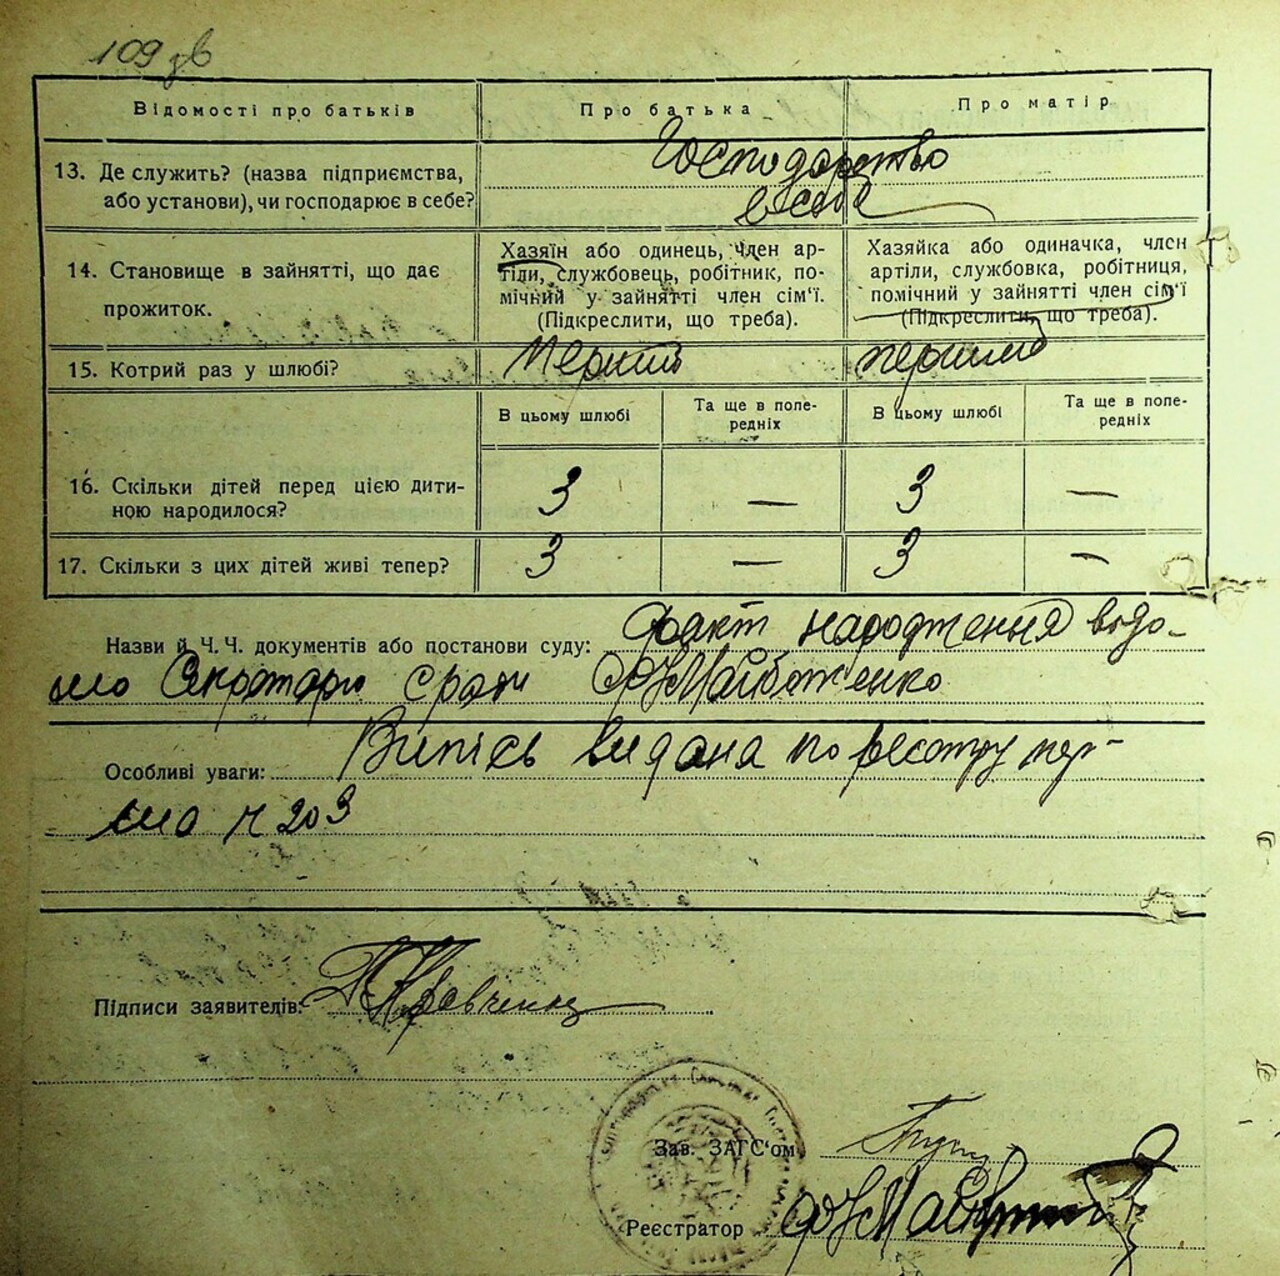 109 зв
Відомості про батьків
Про батька
Про матір
13. Де служить? (назва підприємства,
або установи), чи господарює в себе?
Господарство
в себе
14. Становище в зайнятті, що дає
прожиток.
Хазяїн або одинець, член ар-
тіли, службовець, робітник, по-
мічний у зайнятті член сім'ї.
(Підкреслити, що треба).
Хазяйка або одиначка, член
артіли, службовка, робітниця,
помічний у зайнятті член сім'ї
(Підкреслити, що треба).
15. Котрий раз у шлюбі?
Перший
перший
В цьому шлюбі
Та ще в попе-
редніх
В цьому шлюбі
Та ще в попе-
редніх
16. Скільки дітей перед цією дити-
ною народилося?
3 — 3 —
17. Скільки з цих дітей живі тепер?
3 — 3 —
Назви й Ч. Ч. документів або постанови суду: Факт народження відо-
мо Секретарю сради Майбоженко
Особливі уваги: Випісь видана по реєстру пер-
шо 203
Підписи заявителів: Кравченко
Зав. ЗАГС'ом
Реєстратор